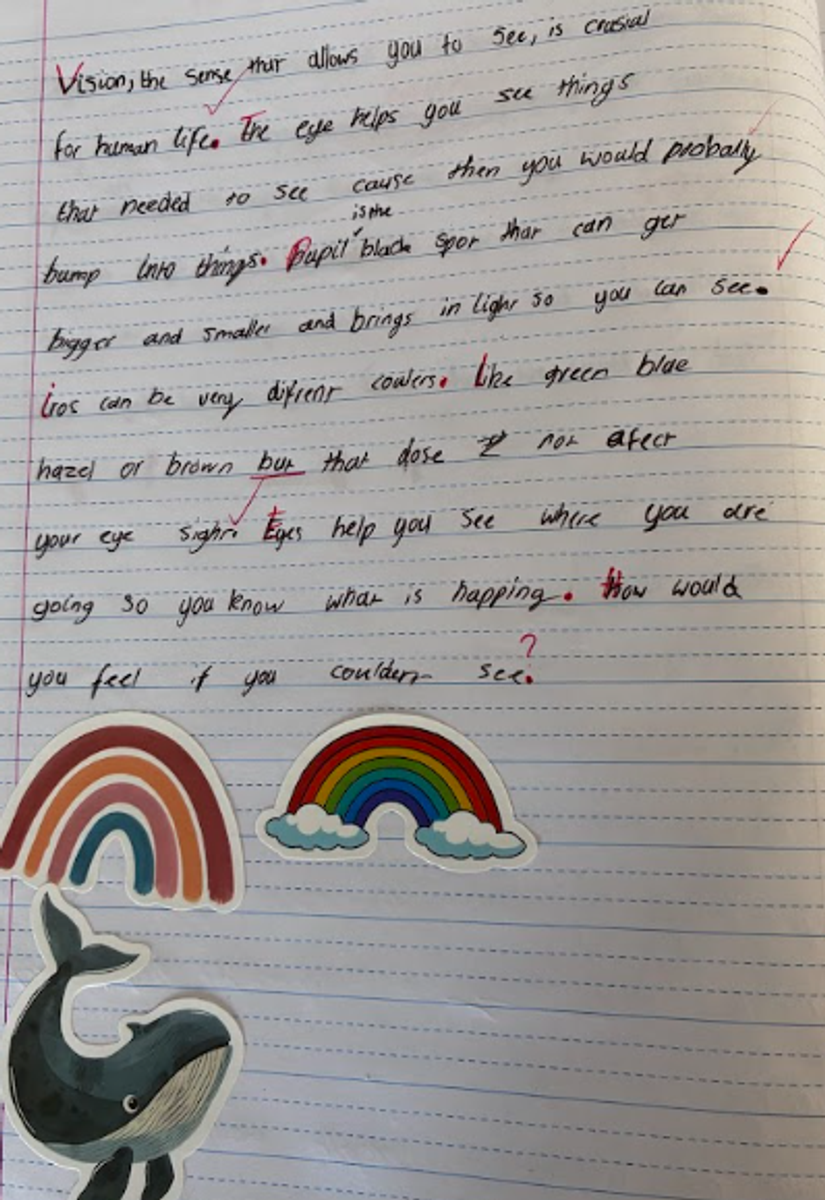 Vision, the sense that allows you to see, is crusial
for human life. The eye helps you see things
that needed to see cause then you would probally
is the
bump into things. Pupil black spot that can get
bigger and smaller and brings in light so you can see.
iros can be very difrent coulers. Like green blue
hazel or brown but that dose not afect
your eye sight. Eyes help you see where you are
going so you know what is happing. How would
you feel if you couldent see.?